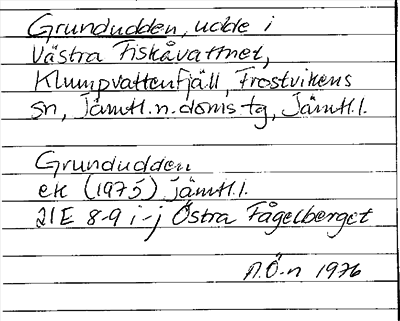 Grundudden, udde i
Västra Fiskåvattnet,
Klumpvattenfjäll, Frostvikens
sn, Jämtl.n.doms.tg, Jämtl.l.
Grundudden
ek (1975) Jämtl.l.
21E 8-9 i-j Östra Fågelberget
A.Ö-n 1976